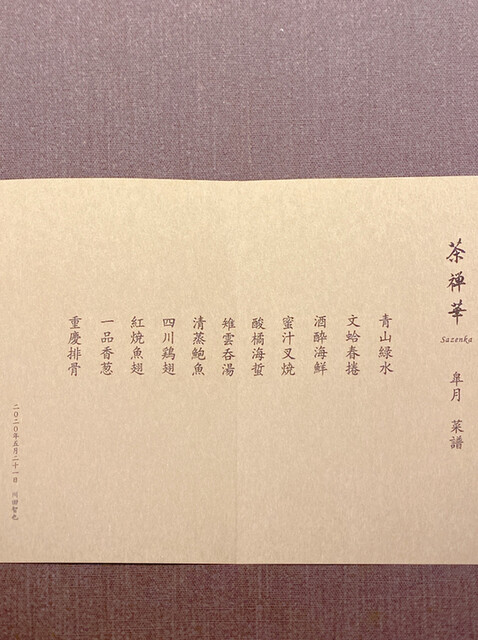 茶禅華
Sazenka
皐月 菜譜
青山緑水
文蛤春捲
酒醉海鮮
蜜汁叉焼
酸橘海蜇
雉雲呑湯
清蒸鮑魚
四川鶏翅
紅焼魚翅
一品香葱
重慶排骨
二〇二〇年五月二十一日 川田智也